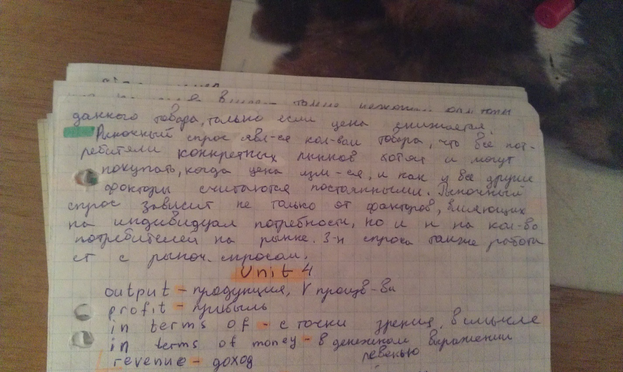 данного товара, только если цена снижается.
Рыночный спрос явл-ся кол-вом товара, что все пот-
ребители конкретных рынков хотят и могут
покупать, когда цена изм-ся, и как и все другие
факторы считаются постоянными. Рыночный
спрос зависит не только от факторов, влияющих
на индивидуал потребности, но и и на кол-во
потребителей на рынке. З-н спроса также работа
ет с рыноч. спросом.
Unit 4
output - продукция, V произв-ва
profit - прибыль
in terms of - с точки зрения, в смысле
in terms of money - в денежном выражении
revenue - доход